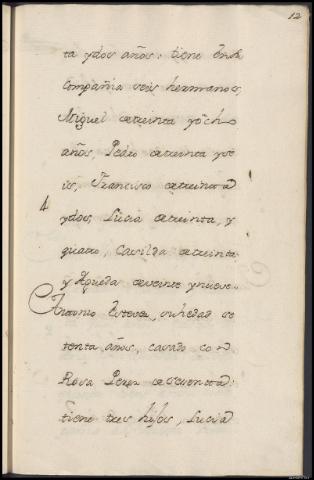 12
ta ydos años: tiene en su
Compañia seis hermanos,
Miguel de treinta yocho
años, Pedro de treinta yse
is, Francisco de treinta
4
ydos, Lucia de treinta, y
quatro, Casilda de treinta
y Agueda de veinte ynueve.
Antonio Esteve, su hedad se
tenta años, casado co
Rosa Perez de sesenta:
tiene tres hijos, Lucia